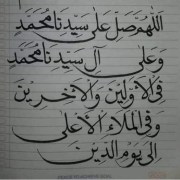 اللهم صل على سيدنا محمد
وعلى آل سيدنا محمد
في الأولين والآخرين
وفي الملاء الأعلى
إلى يوم الدين